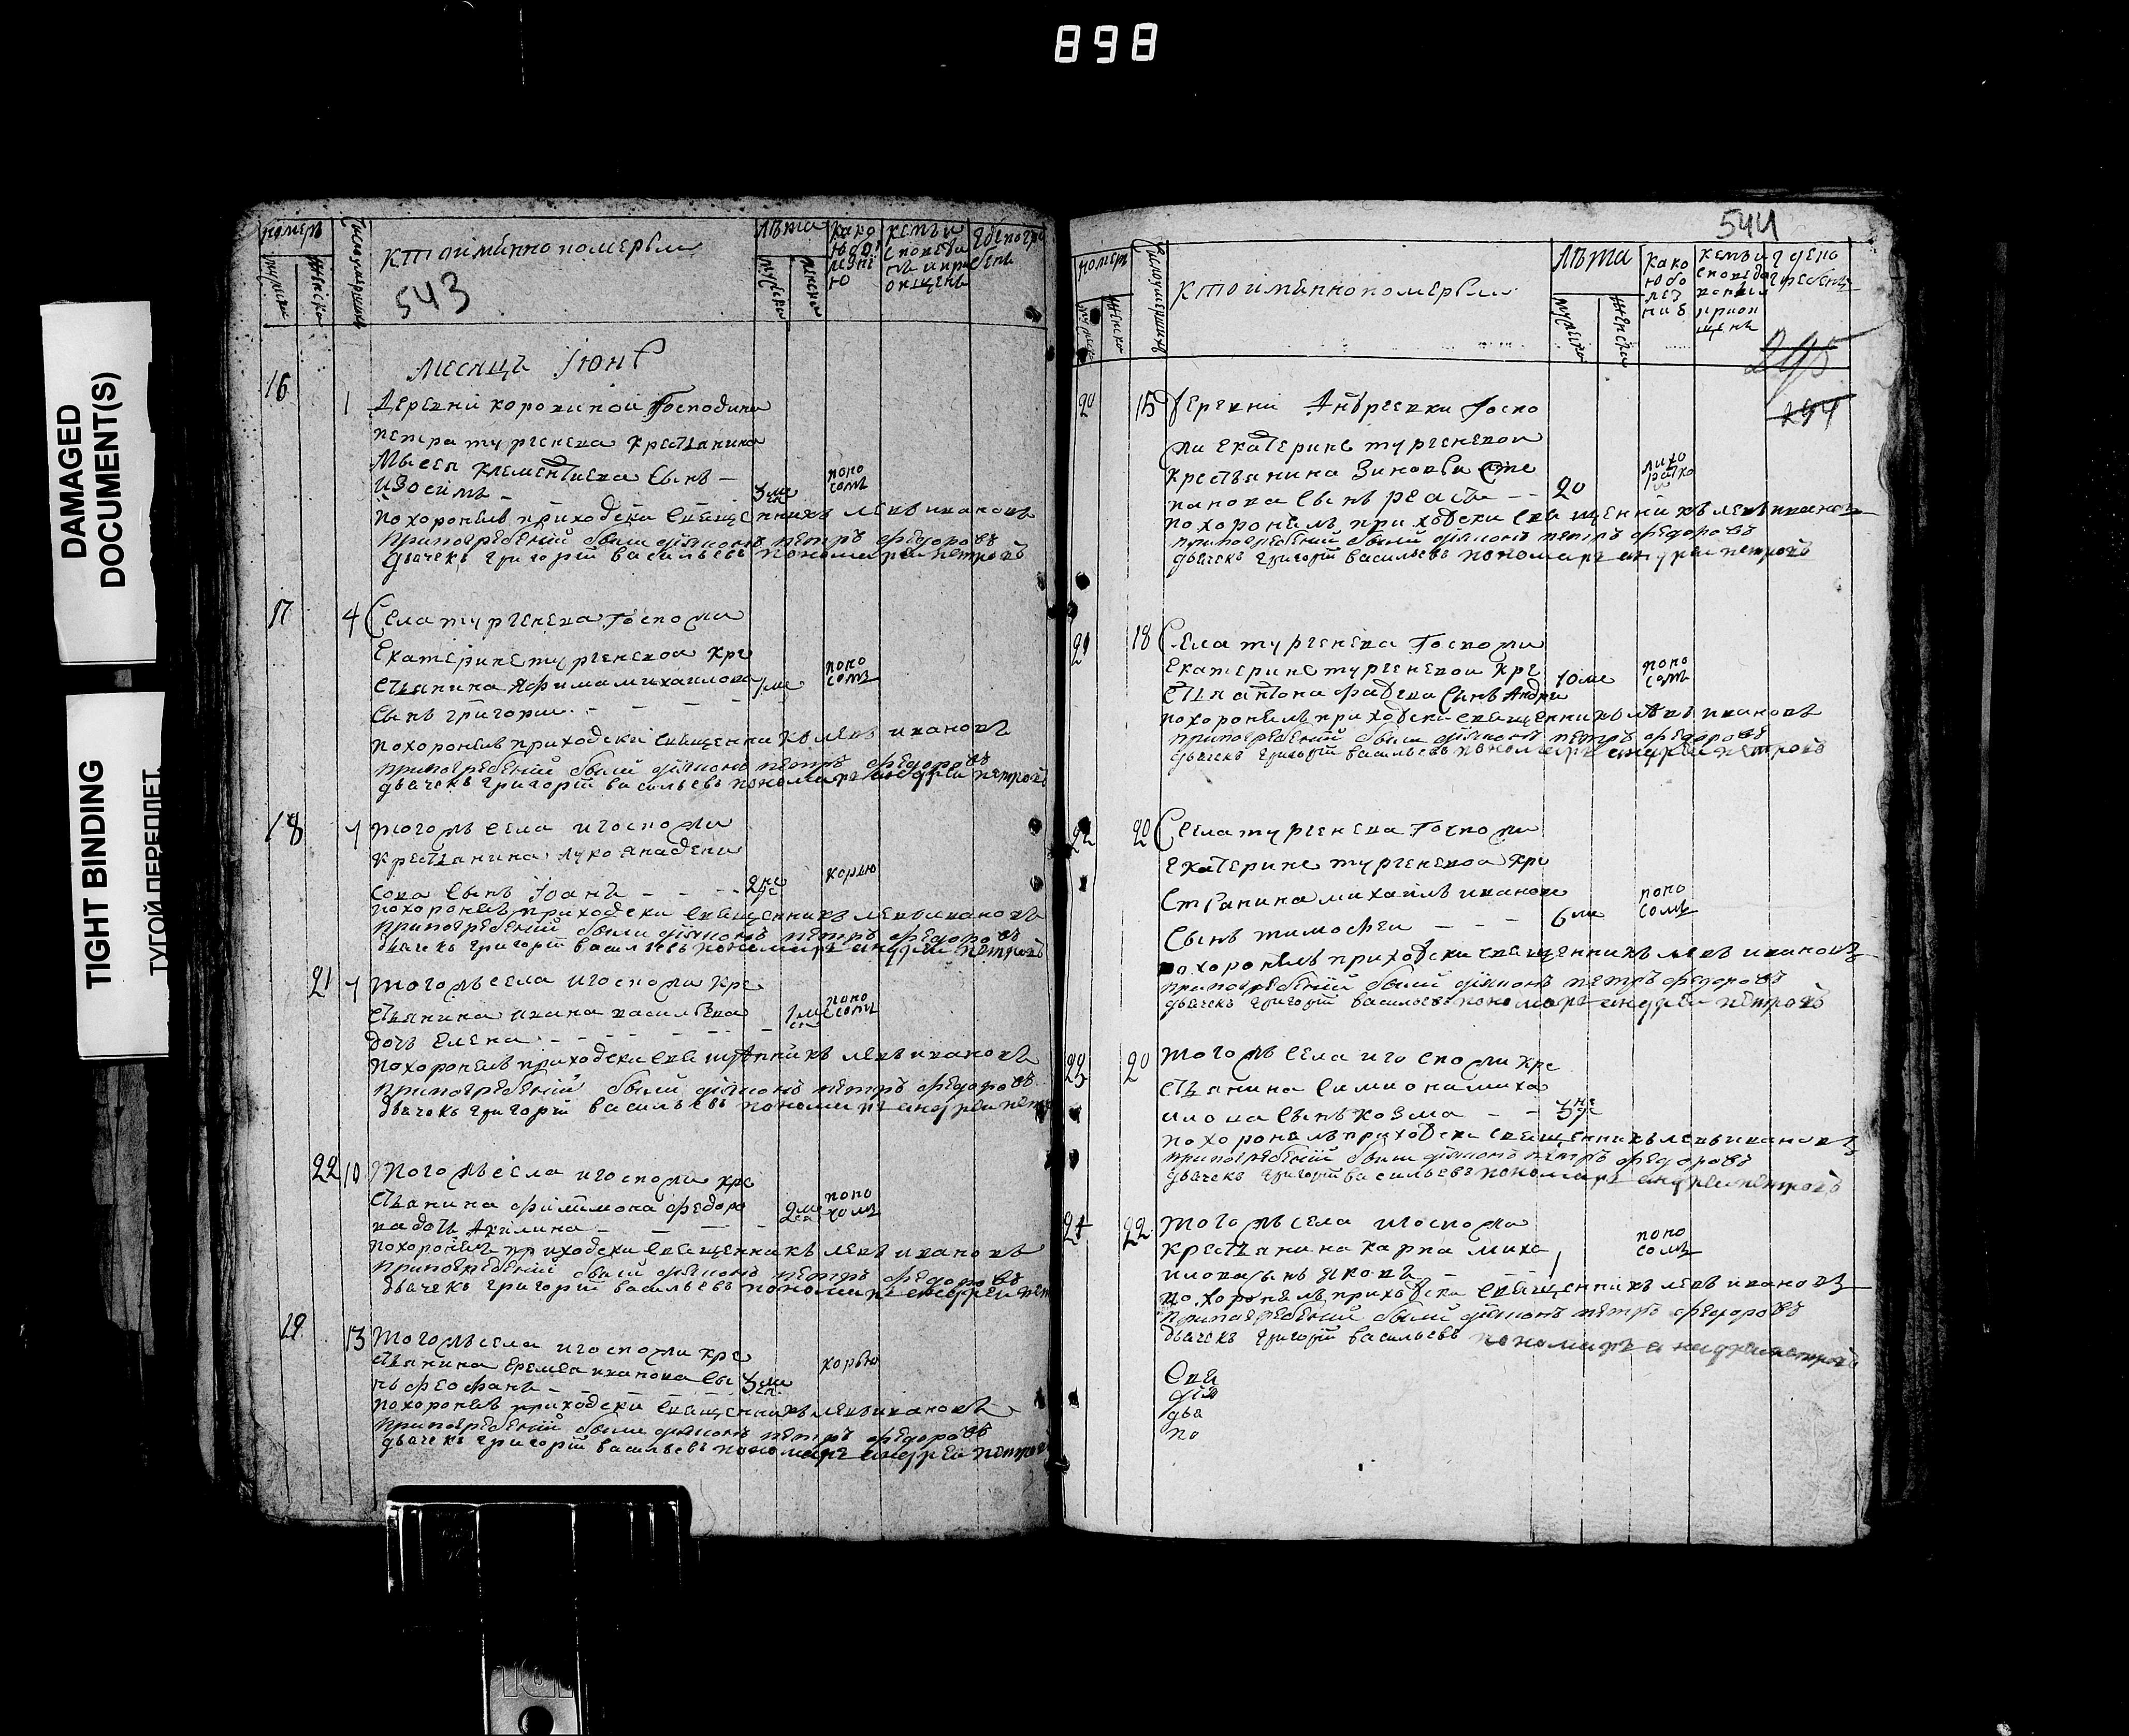 898
DAMAGED
DOCUMENT(S)
TIGHT BINDING
ТУГОЙ ПЕРЕПЛЕТ
номеръ
мужеска
женска
число умершихъ
кто имянно померъли
543
лѣта
мужеска
женска
како
ю бо
лезні
ю
кемъ и
споведа
нъ и при
общенъ
где погре
бенъ
месяцъ Іюнь
16
1
Деревни Коровиной Господина
петра тургенева крестьянина
Мысея Клементиева сынъ
Изосимъ
3 ме
поно
сомъ
похоронилъ приходски священникъ левъ ивановъ
при погребеніи были діяконъ петръ федоровъ
дьячекъ григорій васильевъ пономарь андреи петровъ
17
4
Села тургенева Госпожи
Екатерине тургеневои кре
стьянина Афима михаилова
сынъ григории
1 ме
поно
сомъ
похоронилъ приходски священникъ левъ ивановъ
при погребеніи были діяконъ петръ федоровъ
дьячекъ григорій васильевъ пономарь андреи петровъ
18
7
тогожъ села и госпожи
крестьянина
сова сынъ Іоанъ
2 не
корью
похоронилъ приходски священникъ левъ ивановъ
при погребеніи были діяконъ петръ федоровъ
дьячекъ григорій васильевъ пономарь андреи петровъ
21
7
тогожъ села и госпожи кре
стьянина ивана василева
дочь Елена
1 ме
поно
сомъ
похоронилъ приходски священникъ левъ ивановъ
при погребеніи были діяконъ петръ федоровъ
дьячекъ григорій васильевъ пономарь андреи петровъ
22
10
тогожъ села и госпожи кре
стьянина филимона федоро
ва дочь Акилина
2 ме
поно
сомъ
похоронилъ приходски священникъ левъ ивановъ
при погребеніи были діяконъ петръ федоровъ
дьячекъ григорій васильевъ пономарь андреи пет
19
13
тогожъ села и госпожи кре
стьянина Еремея иванова сы
нъ феофанъ
3 ме
корью
похоронилъ приходски священникъ левъ ивановъ
при погребеніи были діяконъ петръ федоровъ
дьячекъ григорій васильевъ пономарь андреи петров
544
номеръ
мужеска
женска
число умершихъ
кто имянно померъли
лѣта
мужеска
женска
како
ю бо
лез
ние
кемъ и
споведа
нъ и
приоб
щенъ
где по
гребенъ
295
294
20
15
Деревни Андреевки Госпо
жи екатерине тургеневои
крестьянина Зиновъи Сте
панова сынъ
20
лихо
ратко
и
похоронилъ приходски священникъ левъ ивановъ
при погребеніи были діяконъ петръ федоровъ
дьячекъ григорій васильевъ пономарь андреи петровъ
21
18
Села тургенева Госпожи
Екатерине тургеневои кре
стья антона фадеева сынъ Андреи
10 ме
поно
сомъ
похоронилъ приходски священникъ левъ ивановъ
при погребеніи были діяконъ петръ федоровъ
дьячекъ григорій васильевъ пономарь андреи петровъ
22
20
Села тургенева Госпожи
екатерине тургеневои кре
стьянина михаилы иванова
сынъ тимофеи
6 ме
поно
сомъ
похоронилъ приходски священникъ левъ ивановъ
при погребеніи были діяконъ петръ федоровъ
дьячекъ григорій васильевъ пономарь андреи петровъ
23
20
тогожъ села и госпожи кре
стьянина симиона миха
илова сынъ козма
3 не
похоронилъ приходски священникъ левъ ивановъ
при погребеніи были діяконъ петръ федоровъ
дьячекъ григорій васильевъ пономарь андреи петровъ
24
22
тогожъ села и госпожи
крестьянина карпа миха
илова сынъ яковъ
1
поно
сомъ
похоронилъ приходски священникъ левъ ивановъ
при погребеніи были діяконъ петръ федоровъ
дьячекъ григорій васильевъ пономарь андреи петровъ
Свя
дія
дья
по